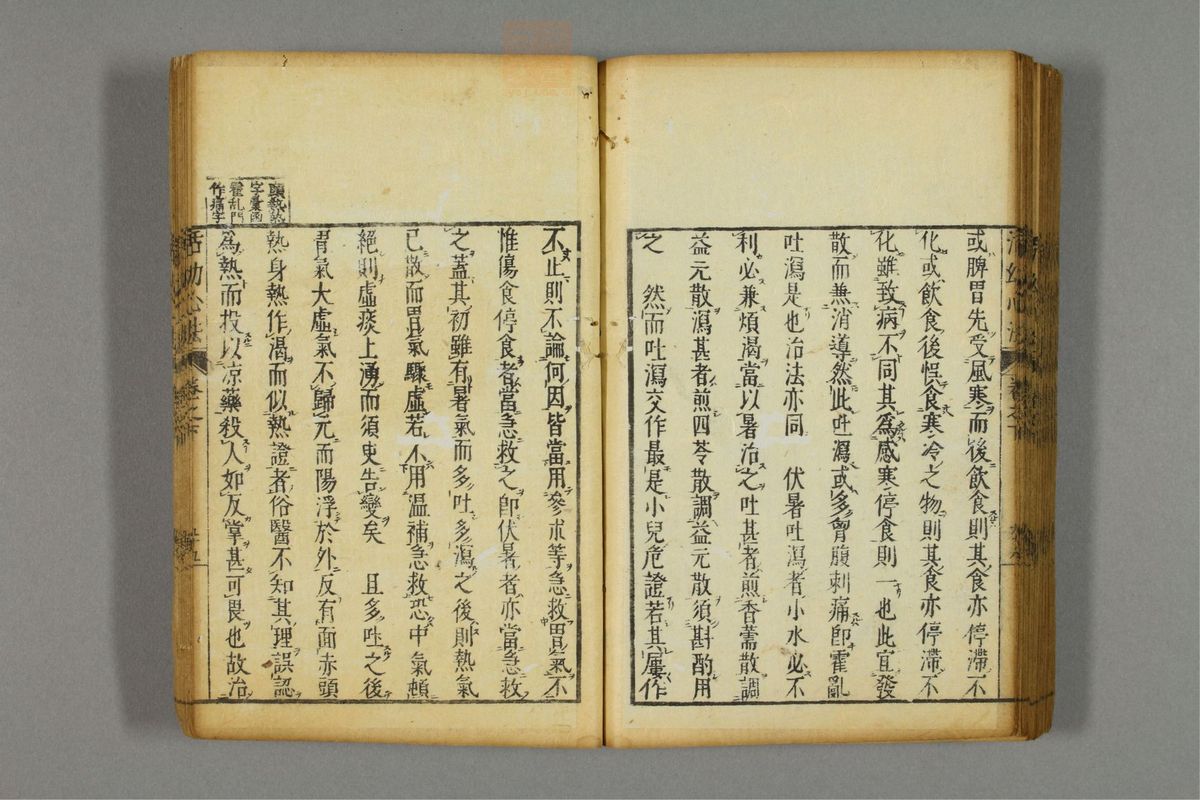 或脾胃先受風寒而後飲食則其食亦停滯不
化或飲食後悞食寒冷之物則其食亦停滯不
化雖致病不同其爲感寒停食則一也此宜發
散而兼消導然此吐瀉或多曾腹刺痛卽霍亂
吐瀉是也治法亦同　伏暑吐瀉者小水必不
利必兼煩渴當以暑治之吐甚者煎香薷散調
益元散瀉甚者煎四苓散調益元散須斟酌用
之　然而吐瀉交作最是小兒危證若其屢作
不止則不論何因皆當用參朮等急救胃氣不
惟傷食停食者當急救之卽伏暑者亦當急救
之蓋其初雖有暑氣而多吐多瀉之後則熱氣
已散而胃氣驟虛若不用温補急救恐中氣頓
絕則虛痰上湧而須臾告變矣　且多吐之後
胃氣大虛氣不歸元而陽浮於外反有面赤頭
熱身熱作渴而似熱證者俗醫不知其理誤認
爲熱而投以凉藥殺人如反掌甚可畏也故治
頭熱
字彙
霍乱門
作痛字
活幼心法
卷之